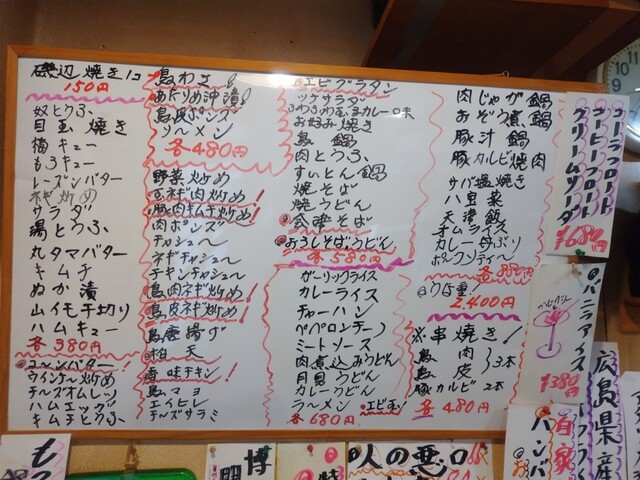 磯辺焼き1コ
150円
奴とうふ
目玉焼き
梅キュー
もろキュー
レーズンバター
ネギ炒め
サラダ
湯とうふ
丸タマバター
キムチ
ぬか漬
山イモ千切り
ハムキュー
各380円
コーンバター!
ウインナー炒め
チーズオムレツ
ハムエッグ
キムチとうふ
鳥わさ!
あたりめ沖漬!
鳥皮ポンズ
ソーメン
各480円
野菜炒め
玉ネギ肉炒め!
豚肉キムチ炒め!
肉ポンズ
チャシュー
ネギチャシュー
チキンチャシュー
鳥肉ネギ炒め!
鳥皮ネギ炒め!
鳥唐揚げ
柏天
香味チキン!
鳥マヨ
エイヒレ
チーズサラミ
エビグラタン
ツナサラダ
お好み焼き
鳥鍋
肉とうふ
すいとん鍋
焼そば
焼うどん
会津そば
おろしそば,うどん
各580円
ガーリックライス
カレーライス
チャーハン
ペペロンチーノ
ミートソース
肉煮込みうどん
月見うどん
カレーうどん
ラーメン
各680円
肉じゃが鍋
おぞう煮鍋
豚汁鍋
豚カルビ焼肉
サバ塩焼き
八宝菜
天津飯
オムライス
カレー丼ぶり
各880円
2,400円
※串焼き!
鳥肉
鳥皮
3本
豚カルビ 2本
各480円
コーラフロート
コーヒーフロート
クリームソーダ
¥680円
バニラアイス
¥380円
広島県産
自家
博
人の悪口